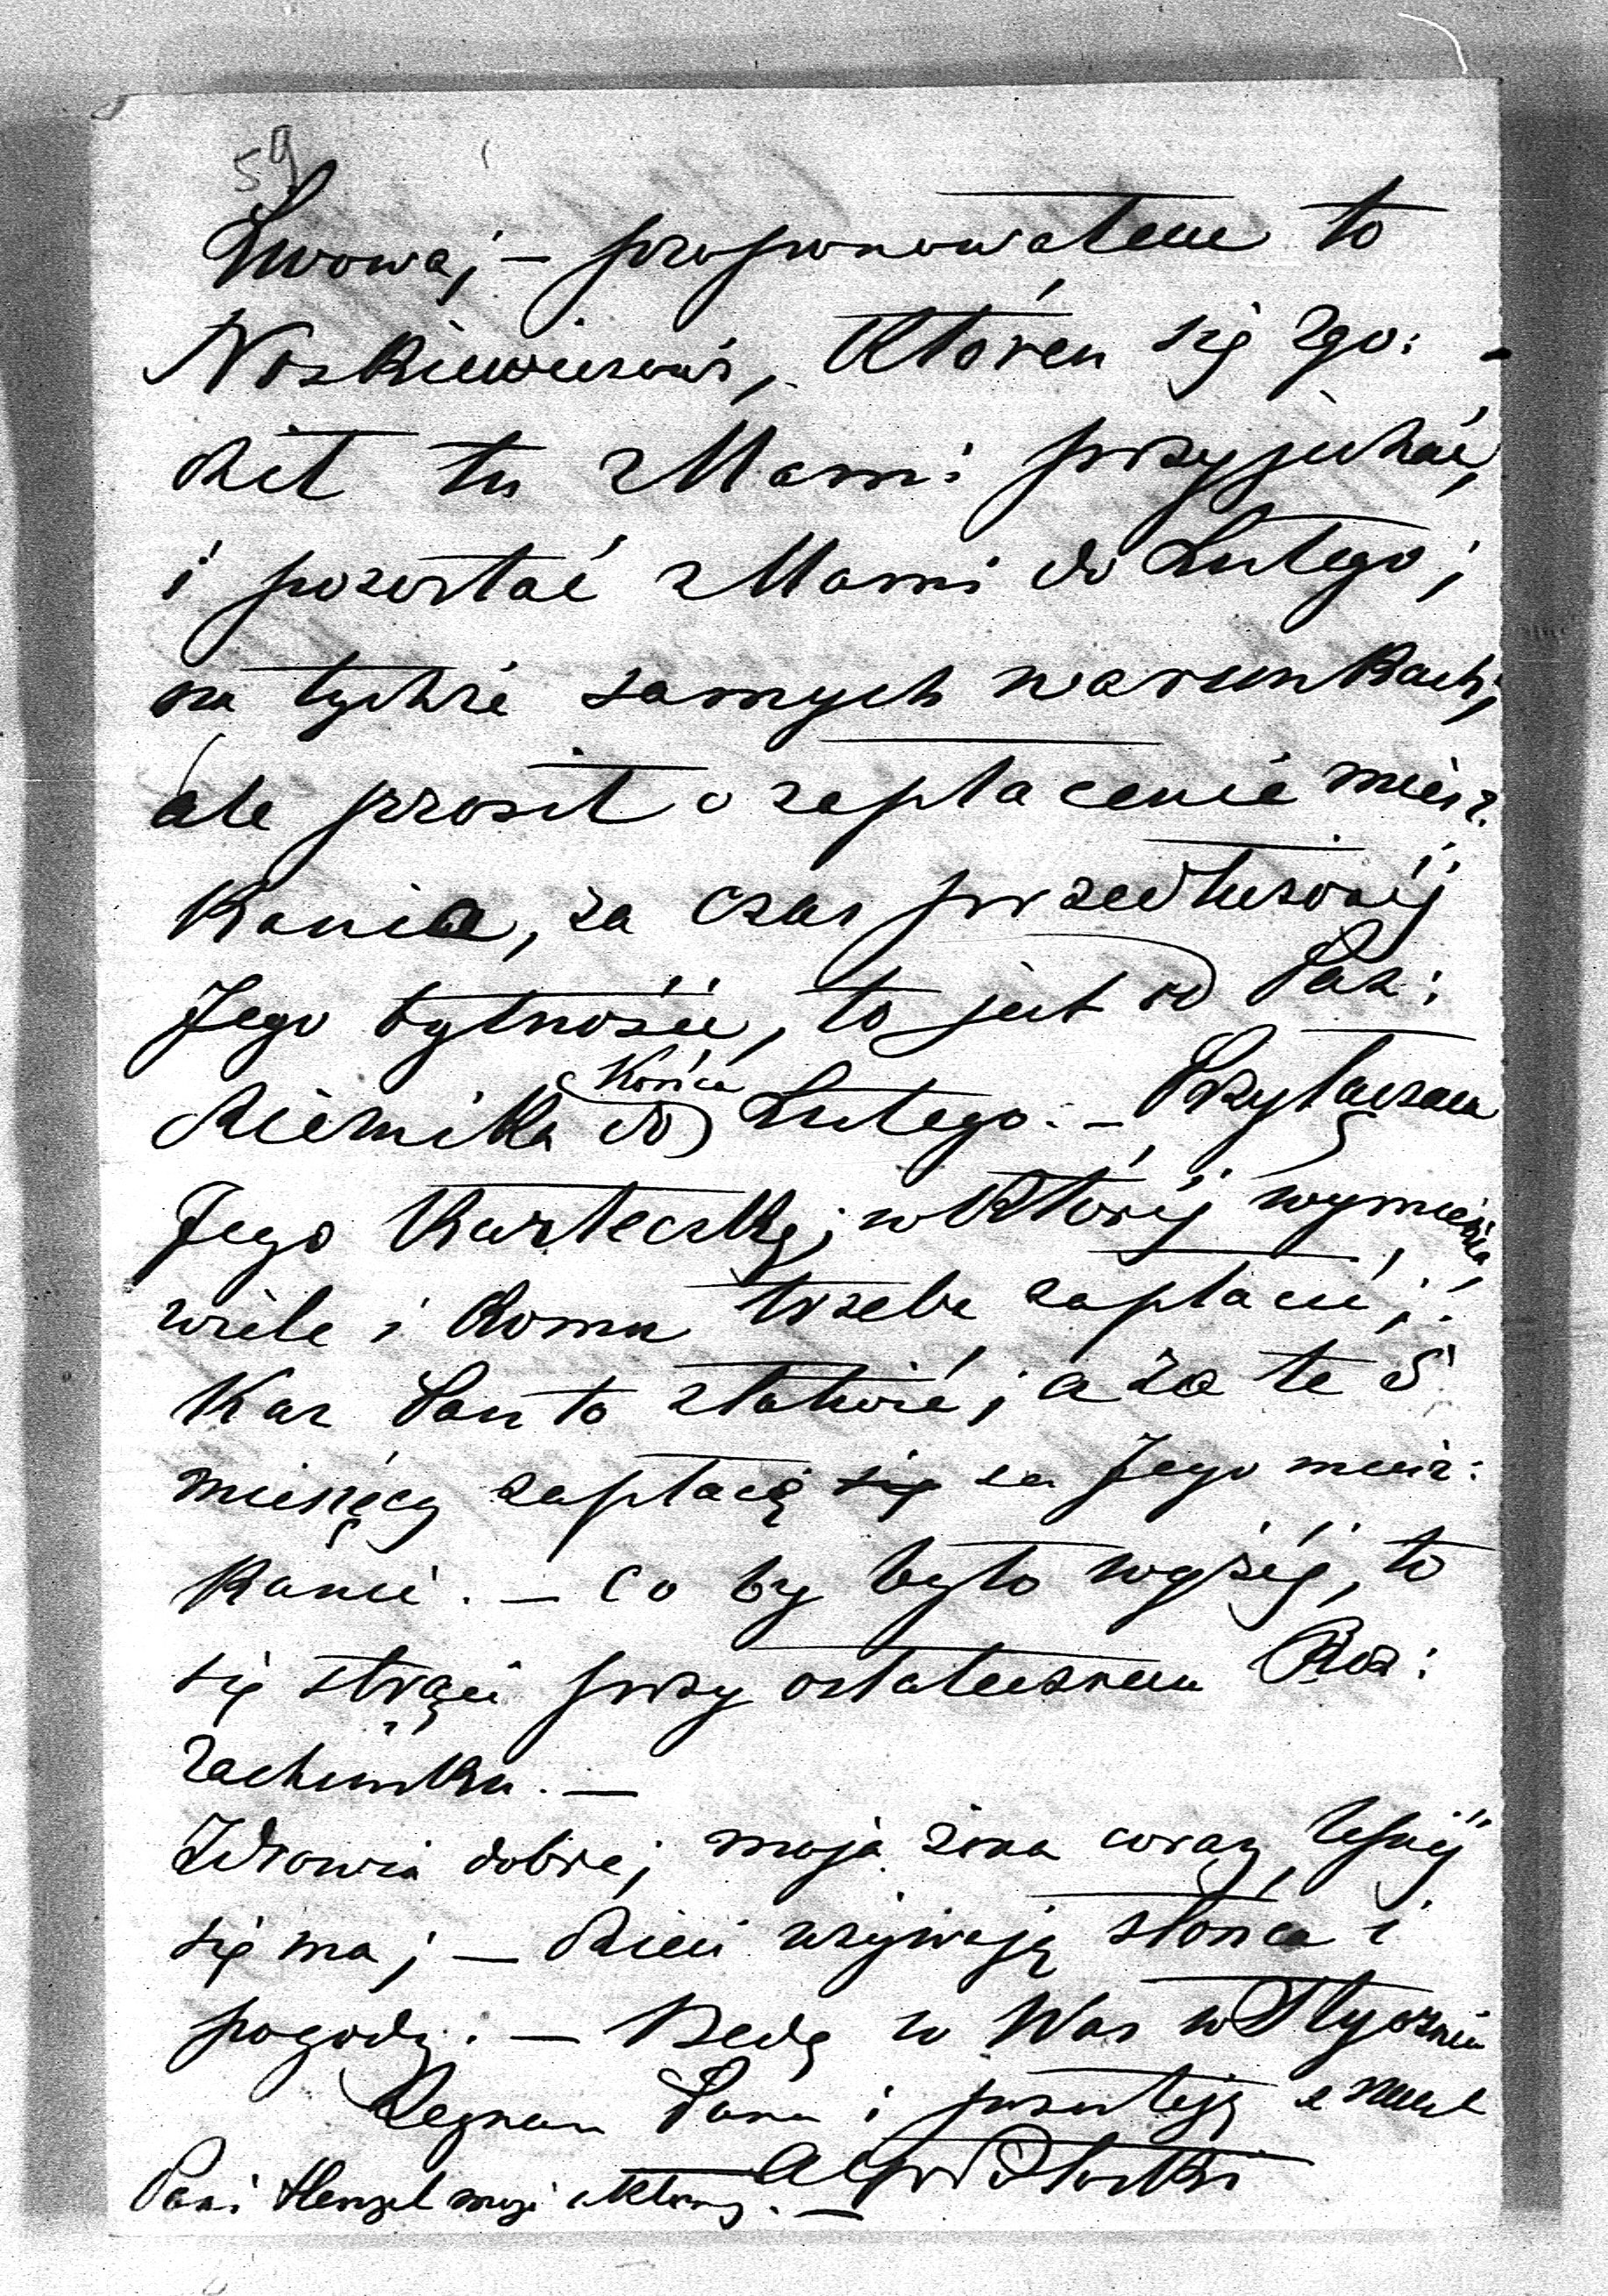 59
Lwowa; – proponowałem to
Noskiewiczowi, któren się zgo:
dził tu z Nami przyjechać,
i pozostać z Nami do Lutego;
na tychże samych warunkach;
ale prosił o zapłacenie miesz:
kania, za czas przedłuzonéj
Jego bytności, to jest od Paź:
dziernika do końca Lutego. – Przyłączam
Jego karteczkę; w któréj wymienia,
wiele i komu trzeba zapłacić;
Kaz Pan to załatwić; a za te 5
miesięcy zapłacą się za Jego miesz:
kanie. – Co by było wyżéj, to
się strąci przy ostatecznem Roz:
rachunku. –
Zdrowia dobre; moja żona coraz lepiéj
się ma; – dzieci używają słońca i
pogody. – Będę u Was w Styczniu
Żegnam Pana i pozostaję
Alfr Potocki
Pani Henzel moje ukłony. –